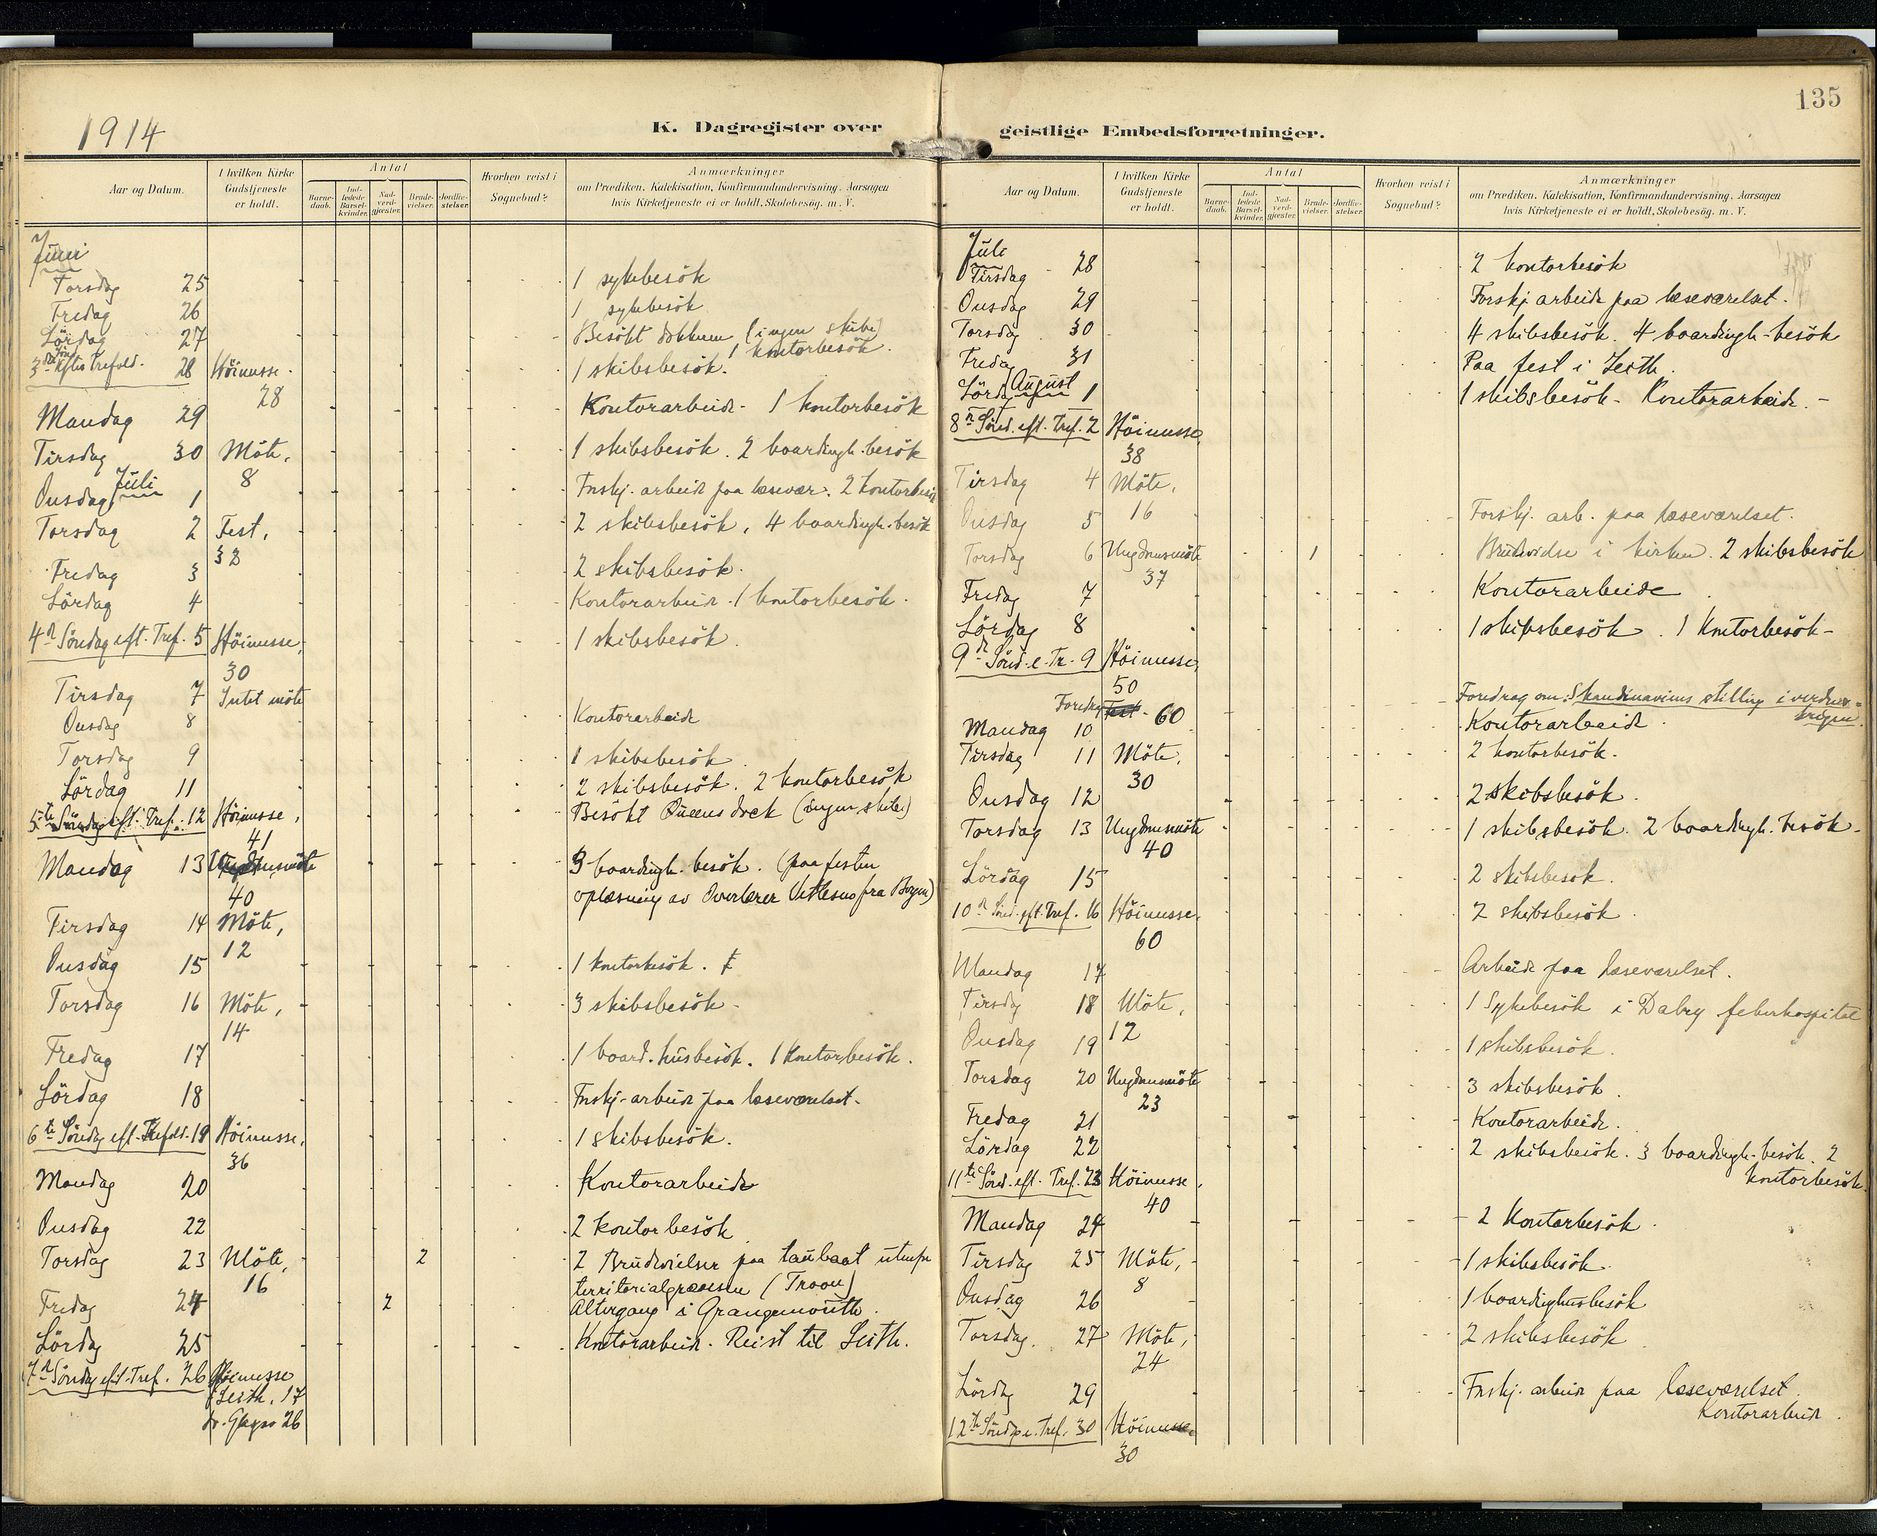 1914
K. Dagregister over
Aar og Datum.
I hvilken Kirke Gudstjeneste er holdt.
Antal
Barne-daab.
Ind-ledede Barsel-kvinder.
Nad-verd-gjæster.
Brude-vielser.
Jordfæ-stelser.
Hvorhen reist i Sognebud?
Anmærkninger
om Prædiken, Katekisation, Konfirmandundervisning, Aarsagen
hvis Kirketjeneste ei er holdt, Skolebesøg. m. V.
Juni
Torsdag 25 1 sykebesök
Fredag 26 1 sykebesök
Lördag 27 Besökt dokken (ingen skibe) 1 kontorbesök.
3die Sön. efter Trefold. 28 Höimesse. 28 1 skibsbesök.
Mandag 29 Kontorarbeide - 1 kontorbesök
Tirsdag 30 Möte, 8 1 skibsbesök. 2 boardingh.besök
Juli
Onsdag 1 Forskj. arbeide paa læsevær. 2 kontorbesök
Torsdag 2 Fest, 32 2 skibsbesök, 4 boardingh.besök
Fredag 3 2 skibsbesök.
Lördag 4 Kontorarbeide. 1 kontorbesök.
4de Söndag eft. Tref. 5 Höimesse, 30 1 skibsbesök.
Tirsdag 7 Intet möte
Onsdag 8 Kontorarbeide
Torsdag 9 1 skibsbesök
Lördag 11 2 skibsbesök. 2 kontorbesök
5te Söndag eft. Tref. 12 Höimesse, 41 Besökt Queens dock (ingen skibe)
Mandag 13 Ungdomsmöte 40 3 boardingh. besök. (paa festen
oplæsning av Overlærer fra Bergen)
Tirsdag 14 Möte, 12
Onsdag 15 1 kontorbesök.
Torsdag 16 Möte, 14 3 skibsbesök -
Fredag 17 1 board.husbesök. 1 kontorbesök.
Lördag 18 Forskj. arbeide paa læseværelset.
6te Söndag eft. Trefold. 19 Höimesse, 36 1 skibsbesök.
Mandag 20 Kontorarbeide
Onsdag 22 2 kontorbesök
Torsdag 23 Möte, 16 2 2 Brudevielser paa taubaat utenfor
territorialgrænsen (Troon)
Fredag 24 2 Altergang i Grangemouth.
Lördag 25 Kontorarbeide. Reist til Leith.
7de Söndag eft. Tref. 26 Höimesse
Leith, 17
do. Glasgow 26
135
geistlige Embedsforretninger.
Aar og Datum.
I hvilken Kirke Gudstjeneste er holdt.
Antal
Barne-daab.
Ind-ledede Barsel-kvinder.
Nad-verd-gjæster.
Brude-vielser.
Jordfæ-stelser.
Hvorhen reist i Sognebud?
Anmærkninger
om Prædiken, Katekisation, Konfirmandundervisning, Aarsagen
hvis Kirketjeneste ei er holdt, Skolebesøg. m. V.
Juli
Tirsdag 28 2 kontorbesök
Onsdag 29 Forskj. arbeide paa læseværelset.
Torsdag 30 4 skibsbesök. 4 boardingh.besök
Fredag 31 Paa fest i Leith.
August
Lördag 1 1 skibsbesök - Kontorarbeide. -
8de Sönd. eft. Tref. 2 Höimesse, 38
Tirsdag 4 Möte, 16
Onsdag 5 Forskj. arb. paa læseværelset.
Torsdag 6 Ungdomsmöte 37 1 Brudevielse i kirken. 2 skibsbesök
Fredag 7 Kontorarbeide.
Lördag 8 1 skibsbesök. 1 kontorbesök -
9de Sönd. e. Tr. 9 Höimesse, 50
Foredrag 60 Foredrag om: Skandinaviens stilling i verdens-
krigen.
Mandag 10 Kontorarbeide.
Tirsdag 11 Möte, 30 2 kontorbesök.
Onsdag 12 2 skibsbesök.
Torsdag 13 Ungdomsmöte 40 1 skibsbesök. 2 boardingh. besök.
Lördag 15 2 skibsbesök.
10de Sönd. eft. Tref. 16 Höimesse, 60 2 skibsbesök.
Mandag 17 Arbeide paa læseværelset.
Tirsdag 18 Möte, 12 1 Sykebesök i feberhospital
Onsdag 19 1 skibsbesök.
Torsdag 20 Ungdomsmöte 23 3 skibsbesök.
Fredag 21 Kontorarbeide.
Lördag 22 2 skibsbesök. 3 boardingh.besök. 2
kontorbesök.
11te Sönd. eft. Tref. 23 Höimesse, 40
Mandag 24 2 Kontorbesök.
Tirsdag 25 Möte, 8 1 skibsbesök.
Onsdag 26 1 boardinghusbesök
Torsdag 27 Möte, 24 2 skibsbesök
Lördag 29 Forskj. arbeide paa læseværelset.
Kontorarbeide.
12te Söndg e. Tref. 30 Höimesse. 30